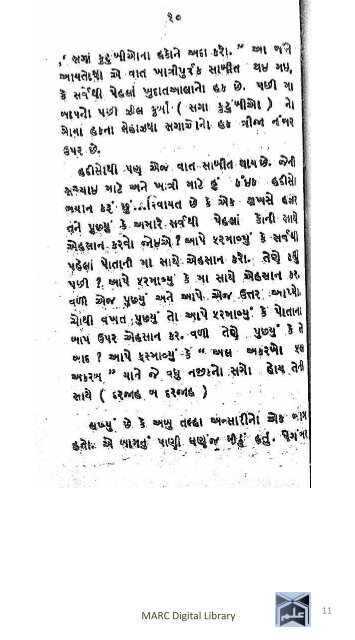 ૧૦
" સગાં કુટુંબીઓના હકોને અદા કરો. " આ બંને
આયતોથી એ વાત ખાત્રીપુર્વક સાબીત થઇ ગઇ,
કે સર્વેથી પેહલાં ખુદાતઆલાનો હક છે. પછી મા
બાપનો પછી ઝીલ કુર્બા ( સગા કુટુંબીઓ ) નો
એમાં હકના લેહાઝથી સગાઓનો હક ત્રીજા નંબર
ઉપર છે.
હદીસોથી પણ એજ વાત સાબીત થાય છે. જેની
સચ્ચાઇ માટે અને ખાત્રી માટે હું કંઇક હદીસો
બયાન કરૂં છું...રિવાયત છે કે એક શખસે હઝ
તને પુછ્યું કે અમારે સર્વથી પેહલાં કોની સાથે
એહસાન કરવો જોઇએ ? આપે ફરમાવ્યું કે સર્વથી
પહેલાં પોતાની મા સાથે એહસાન કરો. તેણે કહ્યું
પછી ? આપે ફરમાવ્યું કે મા સાથે એહસાન કર.
વળી એજ પુછ્યું અને આપે એજ ઉત્તર આપ્યો.
ચોથી વખત પુછ્યું તો આપે ફરમાવ્યું કે પોતાના
બાપ ઉપર એહસાન કર. વળી તેણે પુછ્યું કે તે
બાદ ? આપે ફરમાવ્યું કે " અલ અકરબો ફલ
અકરબ " યાને જે વધુ નજીકનો સગો હોય તેની
સાથે ( દરજાહ બ દરજાહ )
લખ્યું છે કે અબુ તલ્હા અન્સારીનો એક બાગ
હતો. એ બાગનું પાણી ઘણુંજ મીઠું હતું. પેગંબર
MARC Digital Library
علم
11